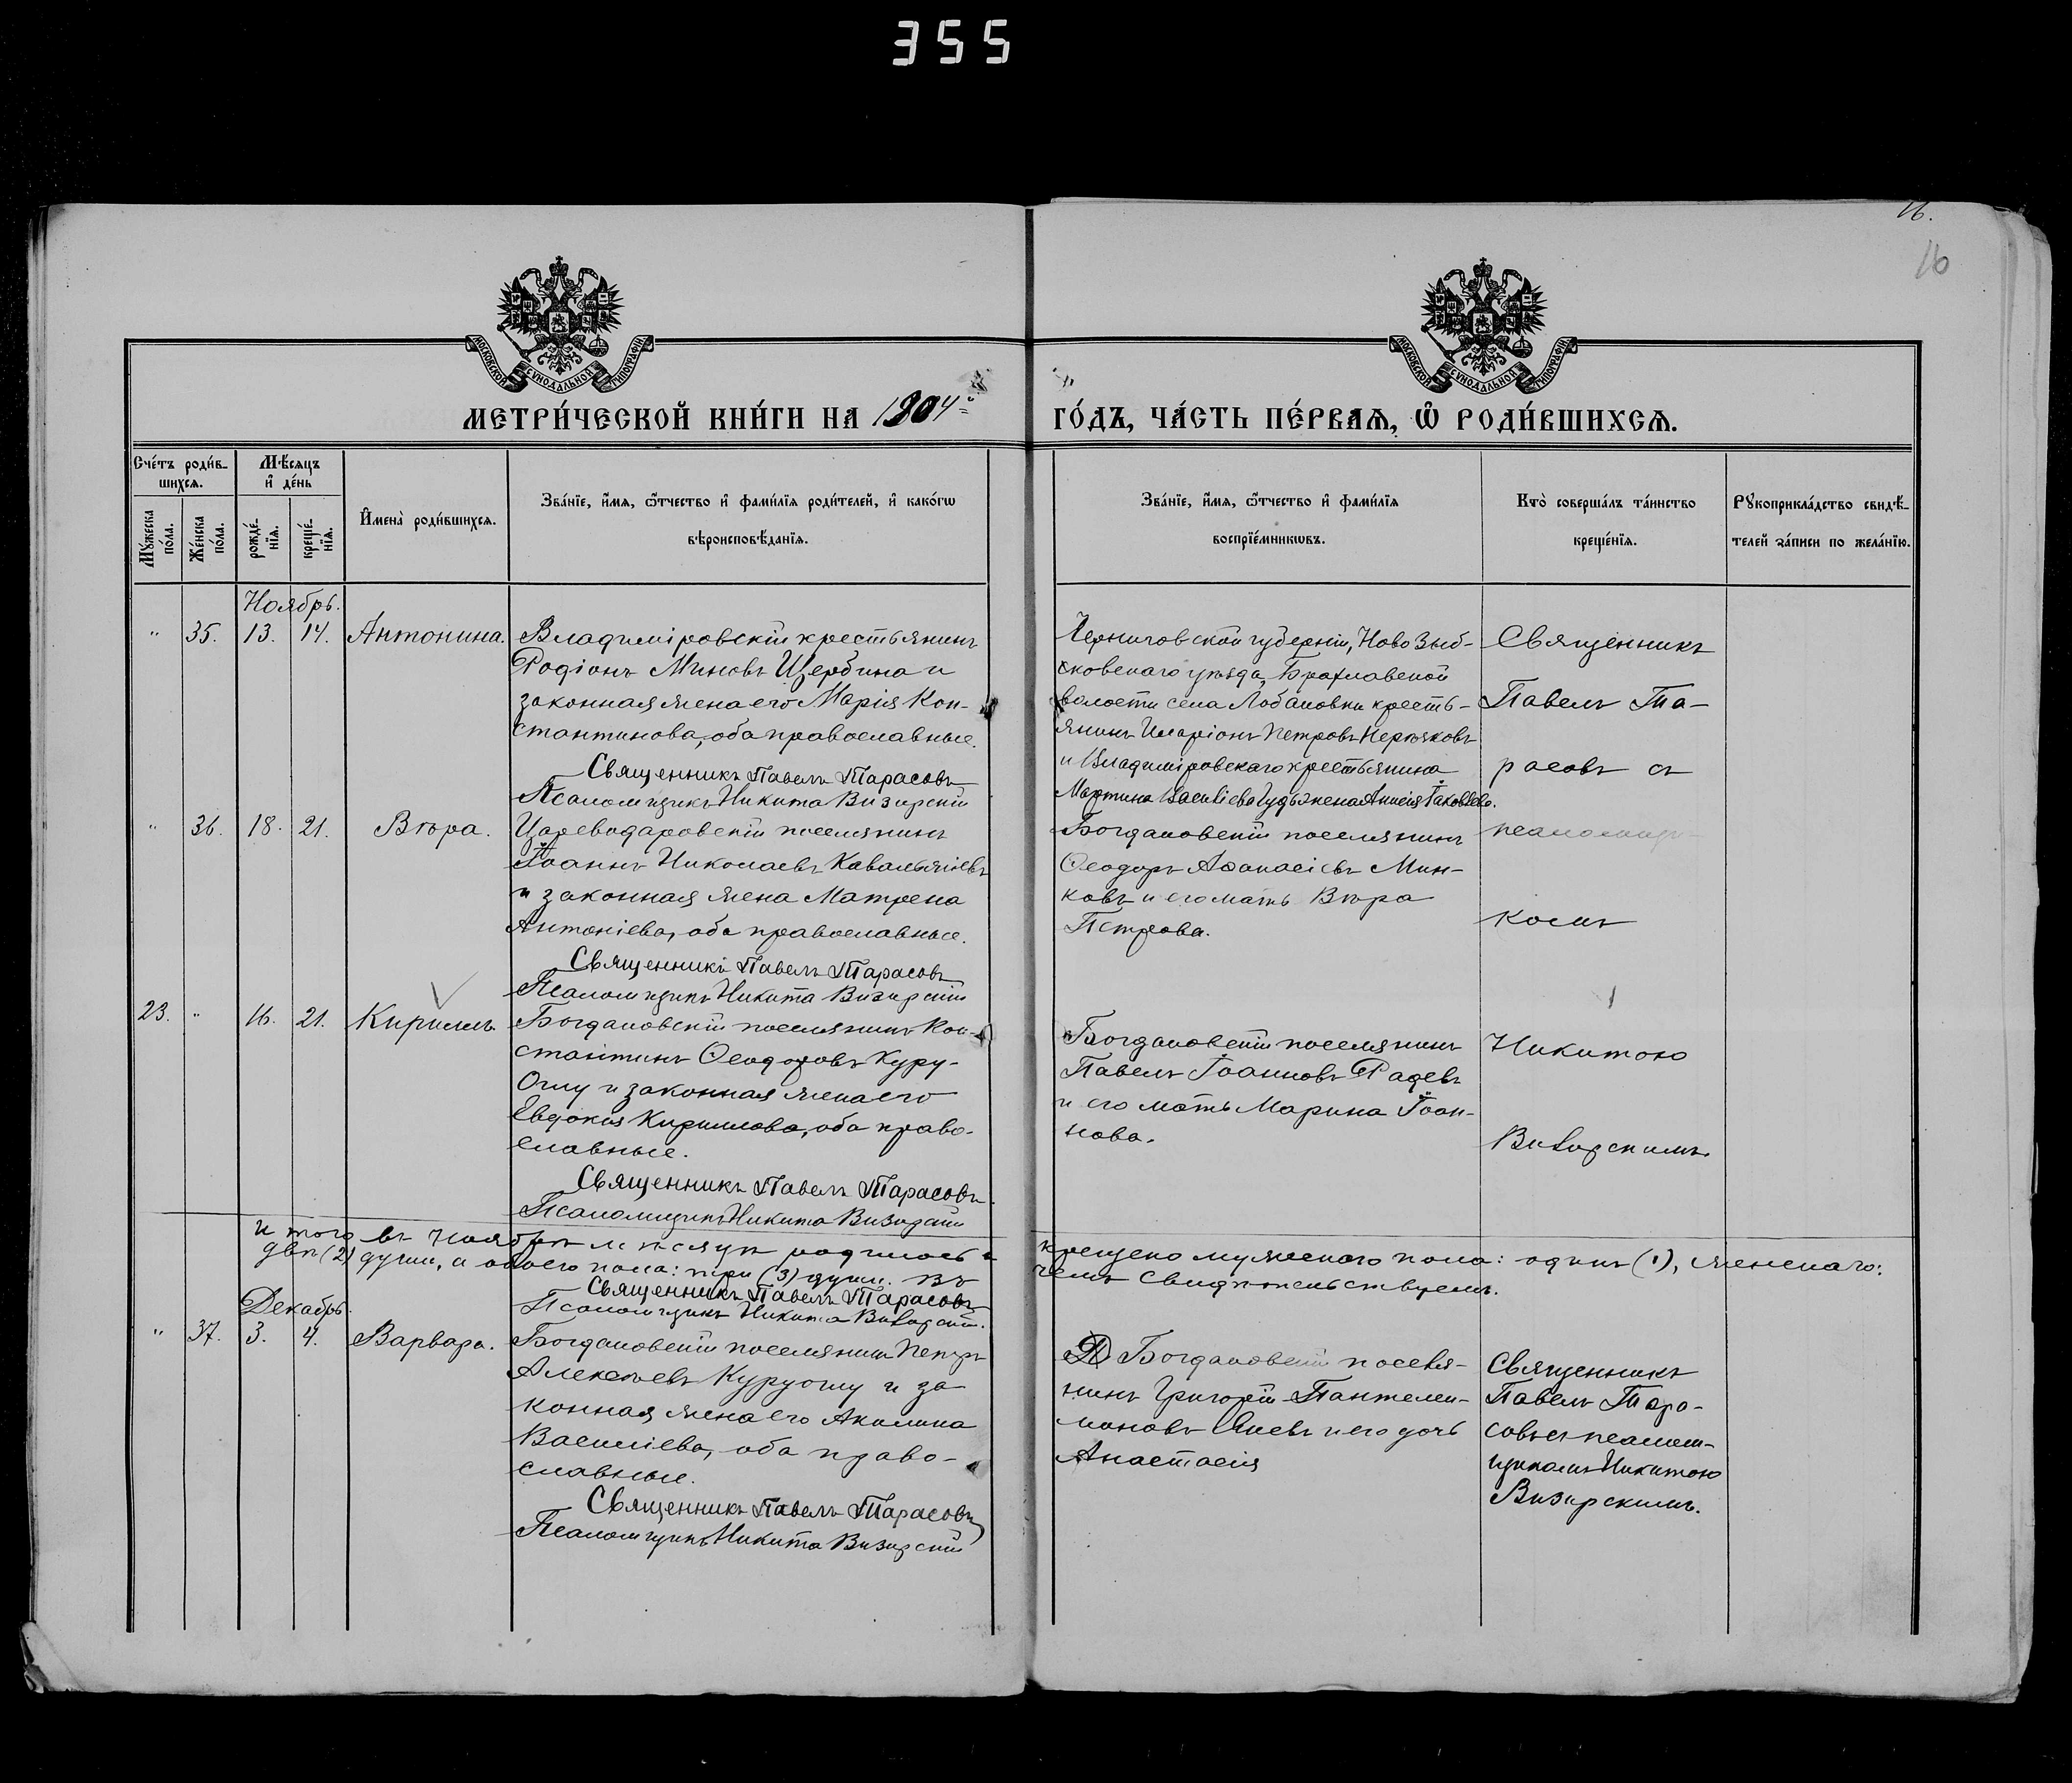 355
16.
16
МОСКОВСКОЙ СѴНОДАЛЬНОЙ ТИПОГРАФІИ
МОСКОВСКОЙ СѴНОДАЛЬНОЙ ТИПОГРАФІИ
МЕТРИ́ЧЕСКОЙ КНИ́ГИ НА 1904й
ГО́ДЪ, ЧА́СТЬ ПЕ́РВАѦ, Ѽ РОДИ́ВШИХСѦ.
Сче́тъ роди́в-
шихсѧ.
Мꙋ́жеска
по́ла.
Же́нска
по́ла.
Мѣ́сѧцъ
и҆ де́нь
рожде́-
нїѧ.
креще́-
нїѧ.
И҆мена̀ роди́вшихсѧ.
Зва́нїе, и҆́мѧ, ѻ҆́тчество и҆ фами́лїѧ роди́телей, и҆ како́гѡ
вѣроисповѣ́данїѧ.
Зва́нїе, и҆́мѧ, ѻ҆́тчество и҆ фами́лїѧ
воспрїе́мникѡвъ.
Кто̀ соверша́лъ та́инство
креще́нїѧ.
Рꙋкоприкла́дство свидѣ́-
телей за́писи по жела́нїю.
Ноябрь.
" 35. 13. 14. Антонина.
Владиміровскій крестьянинъ
Родіонъ Миновъ Щербина и
законная жена его Марія Кон-
стантинова, оба православные.
Священникъ Павелъ Тарасовъ
Псаломщикъ Никита Визирскій
Черниговской губерніи, Ново Зыб-
сковскаго уѣзда, Брахлавской
волости села Лобановки кресть-
янинъ Иларіонъ Петровъ
и Владиміровскаго крестьянина
Мартина Василіева жена Анисія Іаковлева.
Священникъ
Павелъ Та-
расовъ съ
псаломщи-
комъ
Никитою
Визирскимъ.
" 36. 18. 21. Вѣра.
Цареводаровскій поселянинъ
Іоаннъ Николаевъ Кавальжіевъ
и законная жена Матрена
Антоніева, оба православные.
Священникъ Павелъ Тарасовъ
Псаломщикъ Никита Визирскій
Богдановскій поселянинъ
Ѳеодоръ Аѳанасіевъ Мин-
ковъ и его мать Вѣра
Петрова.
23. " 16. 21. Кириллъ.
Богдановскій поселянинъ Кон-
стантинъ Ѳеодоровъ Куру-
Оглу и законная жена его
Евдокія Кириллова, оба право-
славные.
Священникъ Павелъ Тарасовъ
Псаломщикъ Никита Визирскій
Богдановскій поселянинъ
Павелъ Іоанновъ Радевъ
и его мать Марина Іоан-
нова.
Итого въ Ноябрѣ мѣсяцѣ родилось и крещено мужескаго пола: одинъ (1), женскаго:
двѣ (2) души, а обоего пола: три (3) души. Въ чемъ свидѣтельствуемъ.
Священникъ Павелъ Тарасовъ
Псаломщикъ Никита Визирскій.
Декабрь.
" 37. 3. 4. Варвара.
Богдановскій поселянинъ Петръ
Алексѣевъ Куруоглу и за
конная жена его Акилина
Василіева, оба право-
славные.
Священникъ Павелъ Тарасовъ
Псаломщикъ Никита Визирскій
Богдановскій поселя-
нинъ Григорій Пантелеи-
моновъ и его дочь
Анастасія
Священникъ
Павелъ Тара-
совъ съ псалом-
щикомъ Никитою
Визирскимъ.